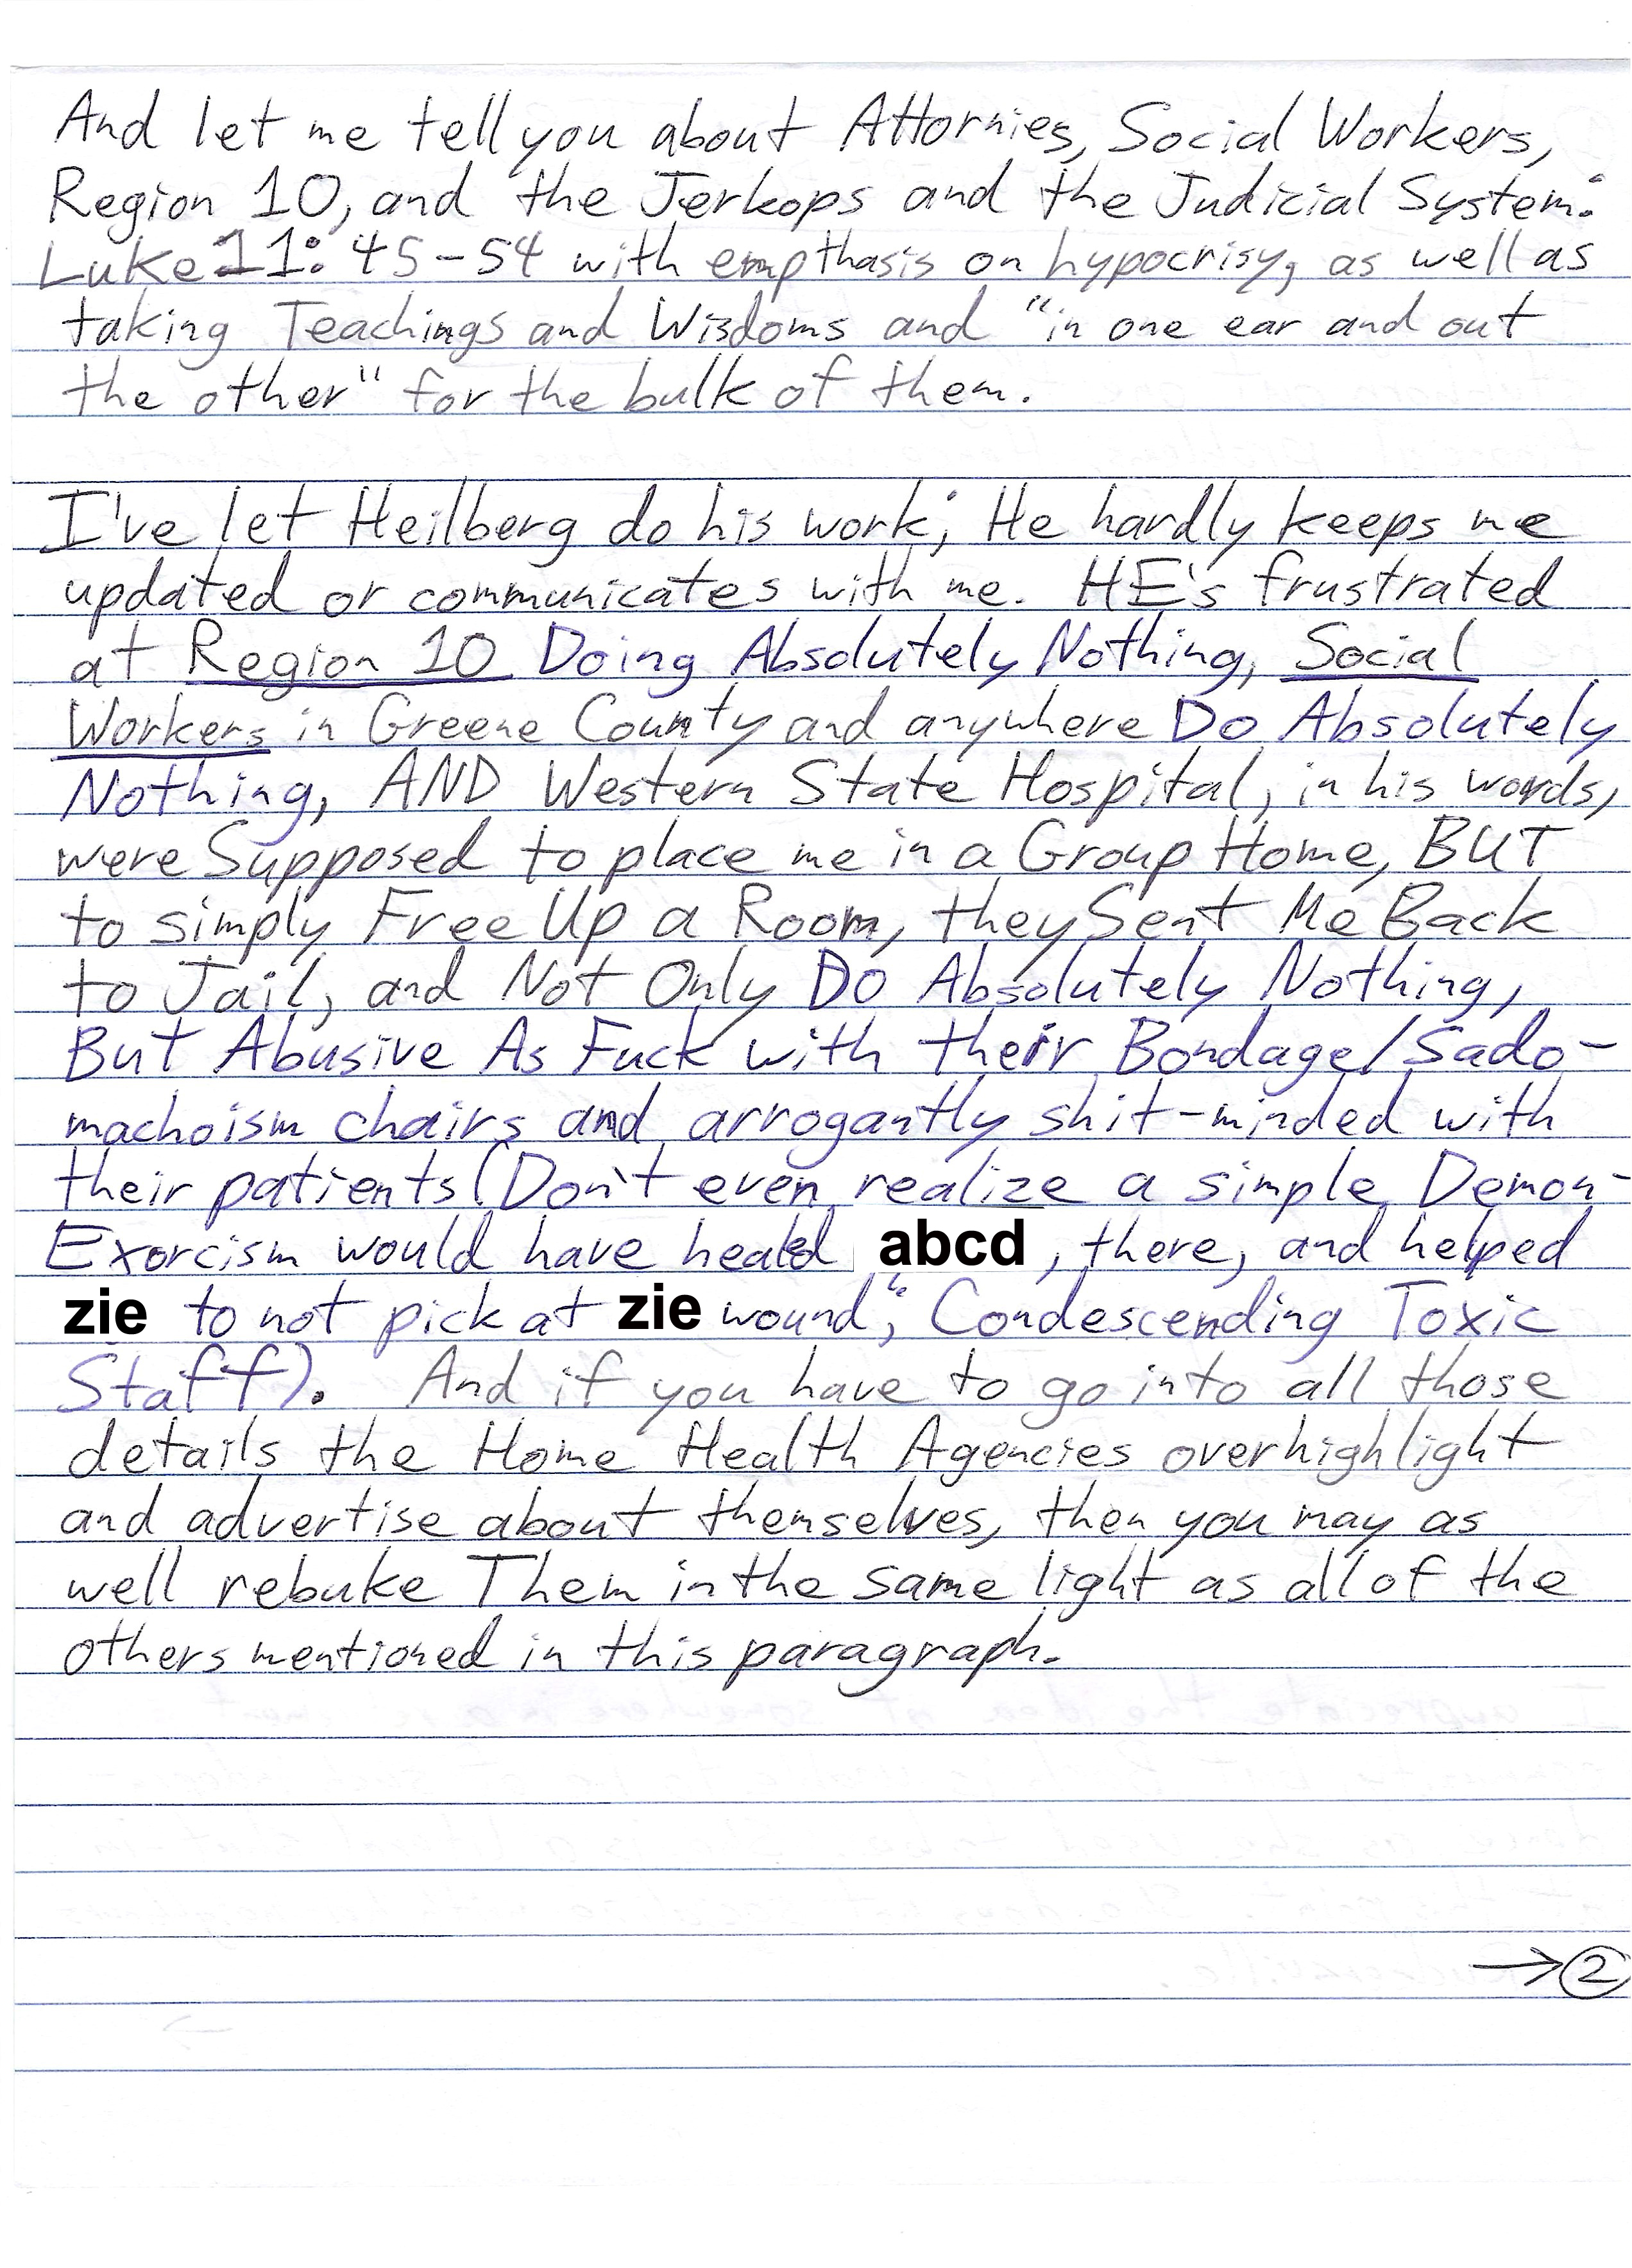 And let me tell you about Attornies, Social Workers,
Region 10, and the Jerkops and the Judicial System:
Luke 11:45-54 with empthasis on hypocrisy, as well as
taking Teachings and Wisdoms and "in one ear and out
the other" for the bulk of them.
I've let Heilberg do his work; He hardly keeps me
updated or communicates with me. HE's frustrated
at Region 10 Doing Absolutely Nothing, Social
Workers in Greene County and anywhere Do Absolutely
Nothing, AND Western State Hospital, in his words,
were Supposed to place me in a Group Home, BUT
to simply Free Up a Room, they Sent Me Back
to Jail, and Not Only DO Absolutely Nothing,
But Abusive As Fuck with their Bondage/Sado-
machoism chairs and arrogantly shit-minded with
their patients (Don't even realize a simple Demon-
Exorcism would have heald abcd, there, and helped
zie to not pick at zie wound; Condescending Toxic
Staff). And if you have to go into all those
details the Home Health Agencies overhighlight
and advertise about themselves, then you may as
well rebuke Them in the same light as all of the
others mentioned in this paragraph.
→②